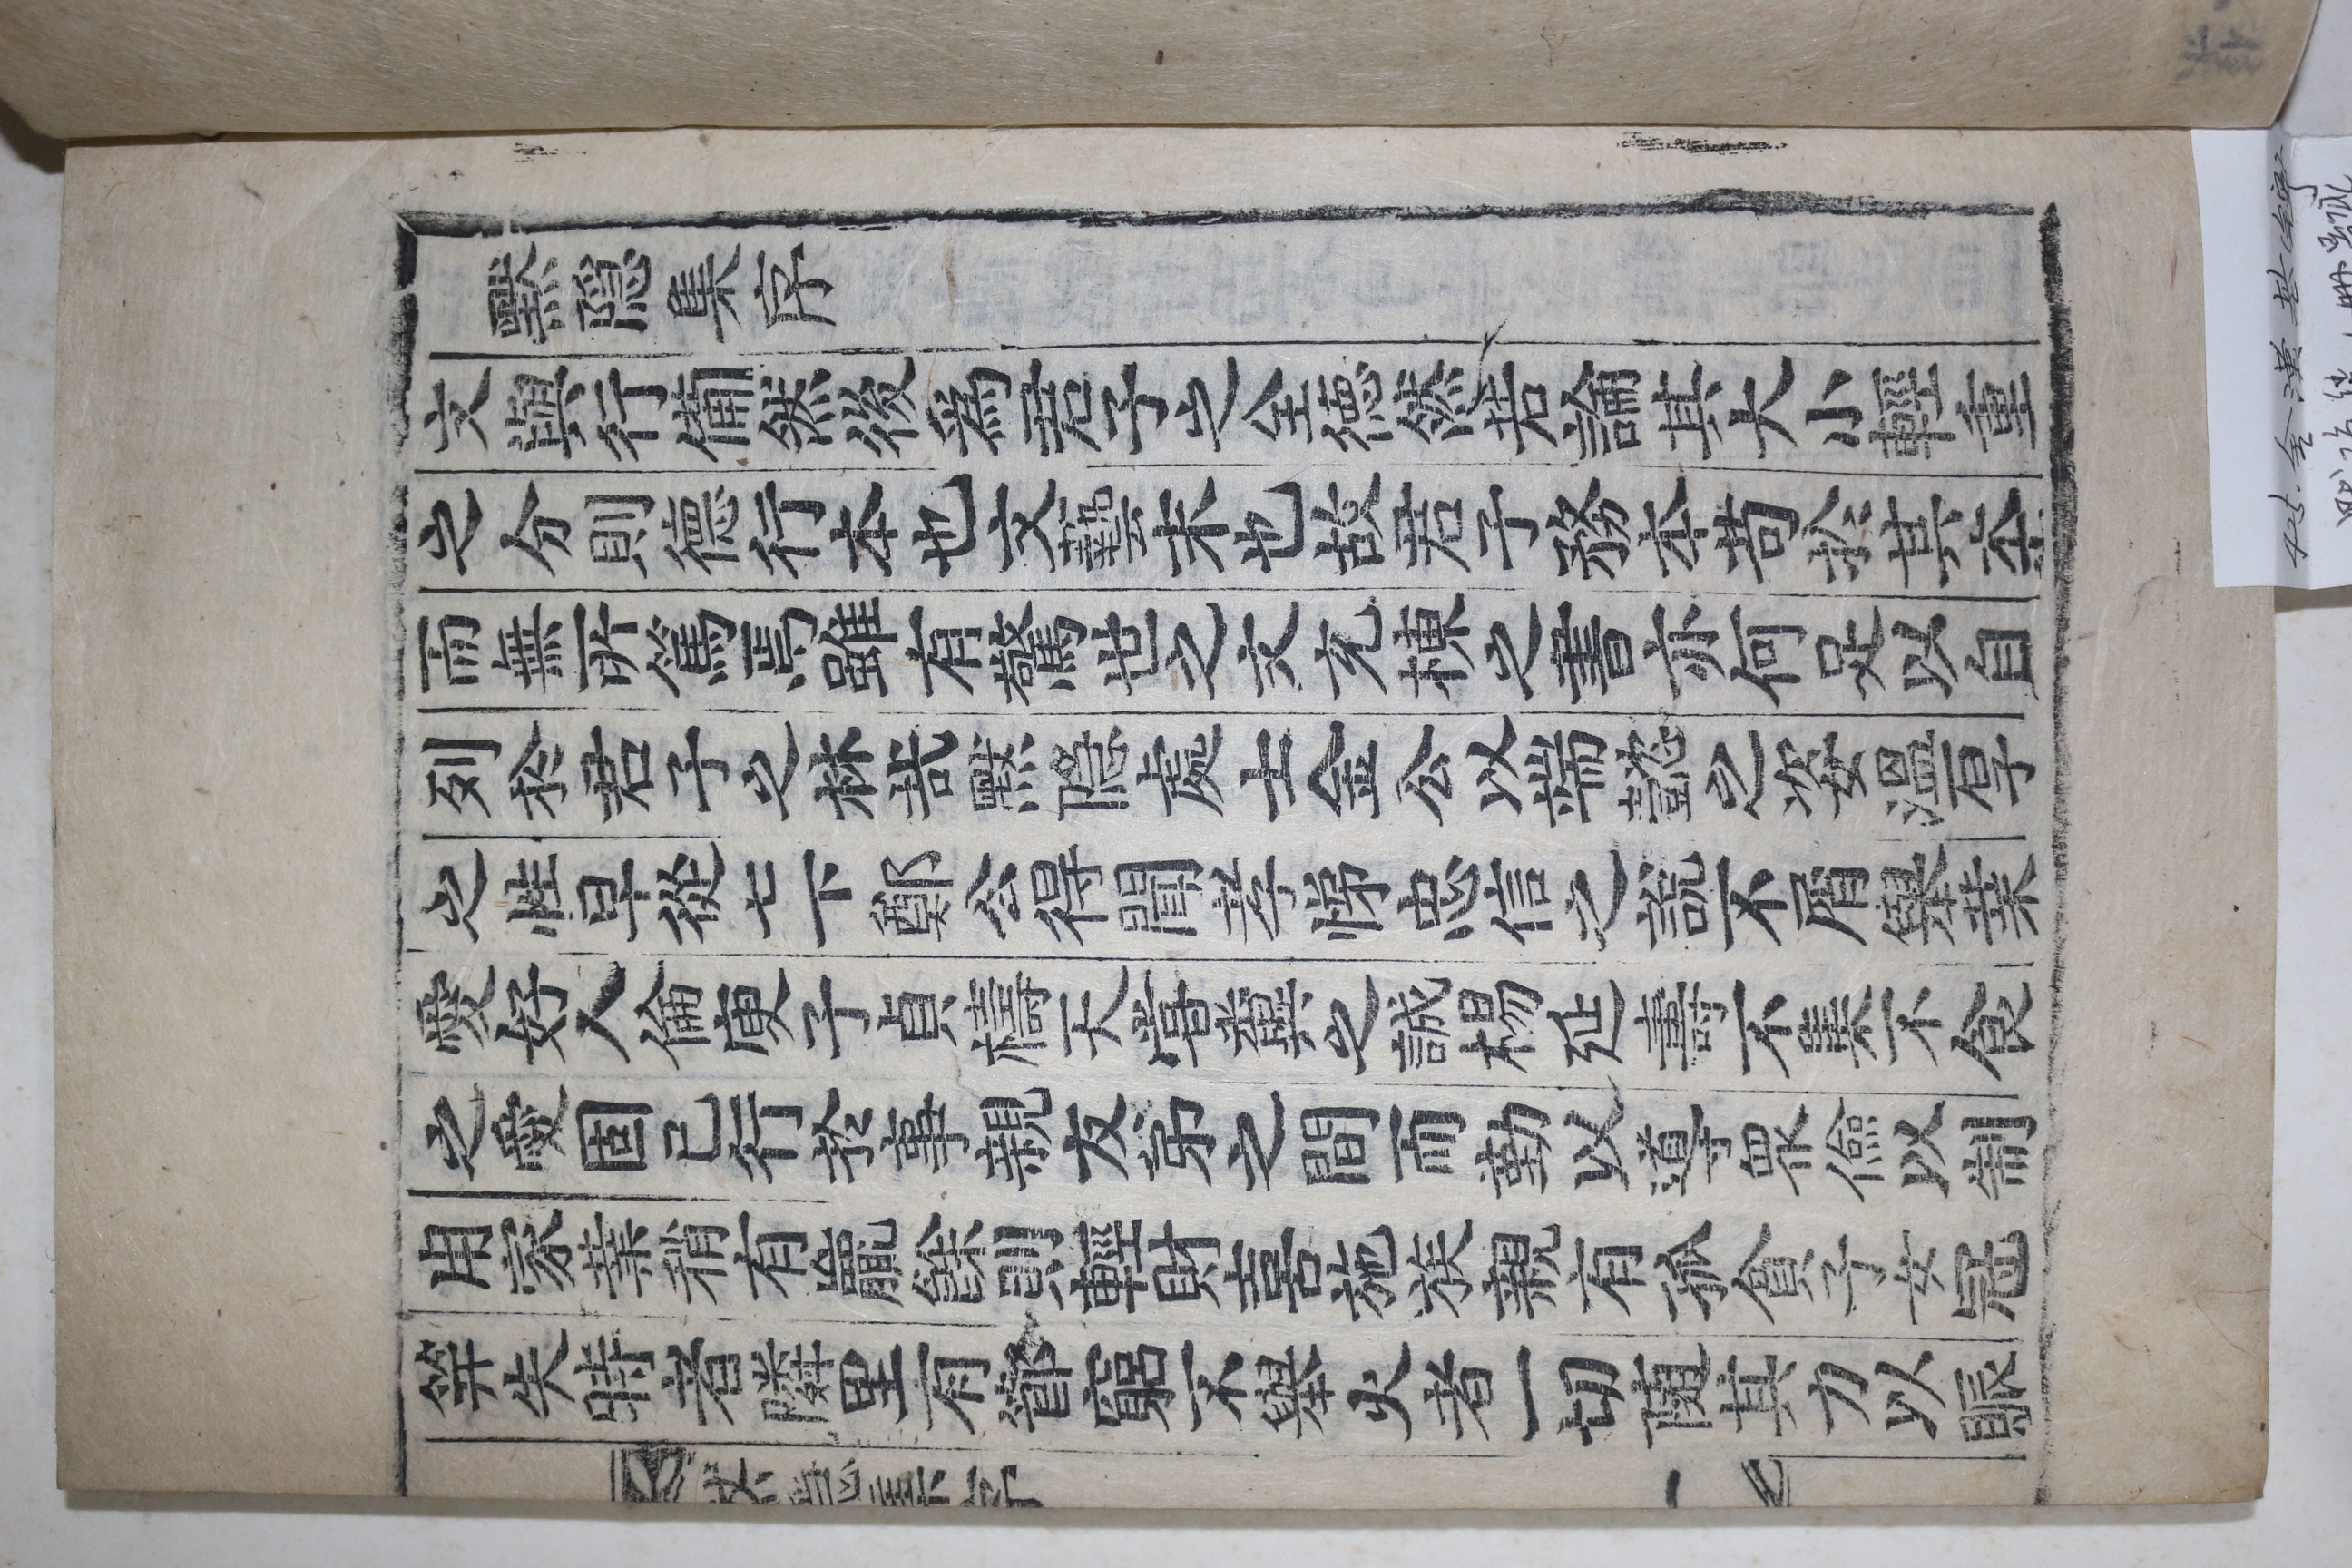 默隱集序
文與行備然後爲君子之全德然若論其大小輕重
之分則德行本也文藝末也故君子務本苟於其本
而無所篤焉雖有驚世之文充棟之書亦何足以自
列於君子之林哉默隱處士金公以端懿之姿溫厚
之性早從七下鄭公得聞孝悌忠信之說不屑擧業
愛好人倫庾子貞禱天嘗糞之誠楊延壽不集不食
之愛固已行於事親友弟之間而勤以導衆儉以制
用家業稍有贏餘則輕財喜施族親有孤貧子女冠
筓失時者隣里有窮不擧火者一切隨其力以賑
默隱集序 一
425. 金漢